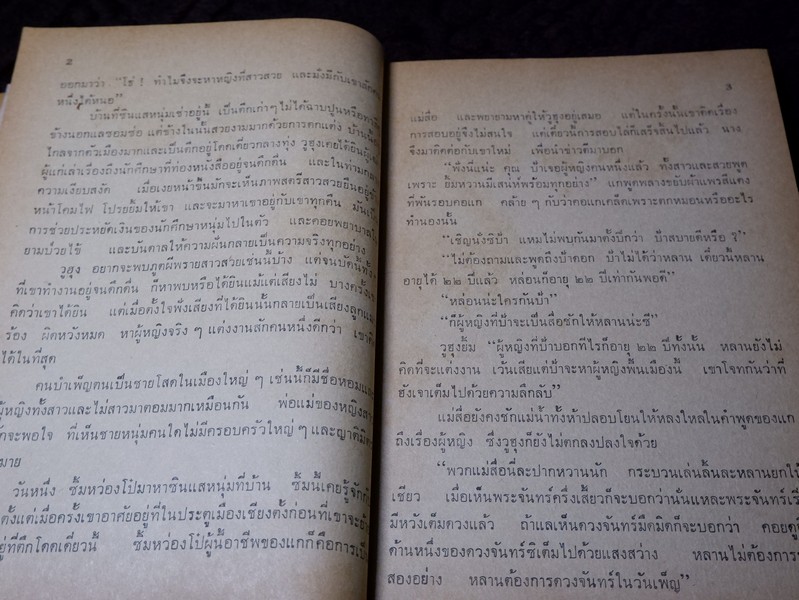 2
ออกมาว่า "โธ่ ! ทำไมจึงจะหาหญิงที่สาวสวย และมั่งมีกับเขาสักคน
หนึ่งได้หนอ"
บ้านที่ซินแสหนุ่มเช่าอยู่นี้ เป็นตึกเก่าๆ ไม่ได้ฉาบปูนหรือทาสี
ข้างนอกแลซอมซ่อ แต่ข้างในนั้นสวยงามมากด้วยการตกแต่ง บ้านนี้
ไกลจากตัวเมืองมากและเป็นตึกอยู่โดดเดี่ยวกลางทุ่ง วูฮุงเคยได้ยิน
ผู้แก่เล่าเรื่องถึงนักศึกษาที่ท่องหนังสืออยู่จนดึกดื่น และในท่ามกลาง
ความเงียบสงัด เมื่อเงยหน้าขึ้นมักจะเห็นภาพสตรีสาวสวยยืนอยู่ข้าง
หน้าโคมไฟ โปรยยิ้มให้เขา และจะมาหาเขาอยู่กับเขาทุกคืน
การช่วยประหยัดเงินของนักศึกษาหนุ่มไปในตัว และคอยพยาบาล
ยามป่วยไข้ และบันดาลให้ความฝันกลายเป็นความจริงทุกอย่าง
วูฮุง อยากจะพบภูตผีพรายสาวสวยเช่นนี้บ้าง แต่จนบัดนี้ทั้ง
ที่เขาทำงานอยู่จนดึกดื่น ก็หาพบหรือได้ยินแม้แต่เสียงไม่ บางครั้ง
คิดว่าเขาได้ยิน แต่เมื่อตั้งใจฟังเสียงที่ได้ยินนั้นกลายเป็นเสียงลูกแมว
ร้อง ผิดหวังหมด หาผู้หญิงจริง ๆ แต่งงานสักคนหนึ่งดีกว่า เขาคิด
ได้ในที่สุด
คนบำเพ็ญตนเป็นชายโสดในเมืองใหญ่ ๆ เช่นนี้ก็มีชื่อหอม
ผู้หญิงทั้งสาวและไม่สาวมาตอมมากเหมือนกัน พ่อแม่ของหญิงสาว
จะพอใจ ที่เห็นชายหนุ่มคนใดไม่มีครอบครัวใหญ่ ๆ และญาติมิตร
มาย
วันหนึ่ง ซิ้มหว่องโป๋มาหาซินแสหนุ่มที่บ้าน ซิ้มนี้เคยรู้จักกัน
ตั้งแต่เมื่อครั้งเขาอาศัยอยู่ที่ในประตูเมืองเชียงตั้งก่อนที่เขาจะย้าย
อยู่ที่ตึกโดดเดี่ยวนี้ ซิ้มหว่องโป๋ผู้นี้อาชีพของแกก็คือการเป็น
3
แม่สื่อ และพยายามหาคู่ให้วูฮุงอยู่เสมอ แต่ในครั้งนั้นเขาคิดเรื่อง
การสอบอยู่จึงไม่สนใจ แต่เดี๋ยวนี้การสอบไล่ก็เสร็จสิ้นไปแล้ว นาง
จึงมาคิดต่อกับเขาใหม่ เพื่อนำข่าวดีมาบอก
"ฟังนี่แน่ะ คุณ ป้าเจอผู้หญิงคนหนึ่งแล้ว ทั้งสาวและสวยพูด
เพราะ ยิ้มหวานมีเสน่ห์พร้อมทุกอย่าง" แกพูดพลางขยับผ้าแพรสีแดง
ที่พันรอบคอแก คล้าย ๆ กับว่าคอแกเคล็ดเพราะตกหมอนหรืออะไร
ทำนองนั้น
"เชิญนั่งซิป้า แหมไม่พบกันมาตั้งปีกว่า ป้าสบายดีหรือ ?"
"ไม่ต้องถามและพูดถึงป้าดอก ป้าไม่ได้ว่าหลาน เดี๋ยวนี้หลาน
อายุได้ ๒๒ ปีแล้ว หล่อนก็อายุ ๒๒ ปีเท่ากันพอดี"
"หล่อนน่ะใครกันป้า"
"ก็ผู้หญิงที่ป้าจะเป็นสื่อชักให้หลานน่ะซี"
วูฮุงยิ้ม "ผู้หญิงที่ป้าบอกทีไรก็อายุ ๒๒ ปีทั้งนั้น หลานยังไม่
คิดที่จะแต่งงาน เว้นเสียแต่ป้าจะหาผู้หญิงพื้นเมืองนี้ เขาโจทกันว่าที่
ฮังเจาเต็มไปด้วยความลึกลับ"
แม่สื่อยังคงชักแม่น้ำทั้งห้าปลอบโยนให้หลงใหลในคำพูดของแก
ถึงเรื่องผู้หญิง ซึ่งวูฮุงก็ยังไม่ตกลงปลงใจด้วย
"พวกแม่สื่อนี่ละปากหวานนัก กระบวนเล่นลิ้นละหามยกให้
เชียว เมื่อเห็นพระจันทร์ครึ่งเสี้ยวก็จะบอกว่านั่นแหละพระจันทร์
มีหวังเต็มดวงแล้ว ถ้าแลเห็นดวงจันทร์มืดมิดก็จะบอกว่า คอยดู
ด้านหนึ่งของดวงจันทร์ซิเต็มไปด้วยแสงสว่าง หลานไม่ต้องการ
สองอย่าง หลานต้องการดวงจันทร์ในวันเพ็ญ"